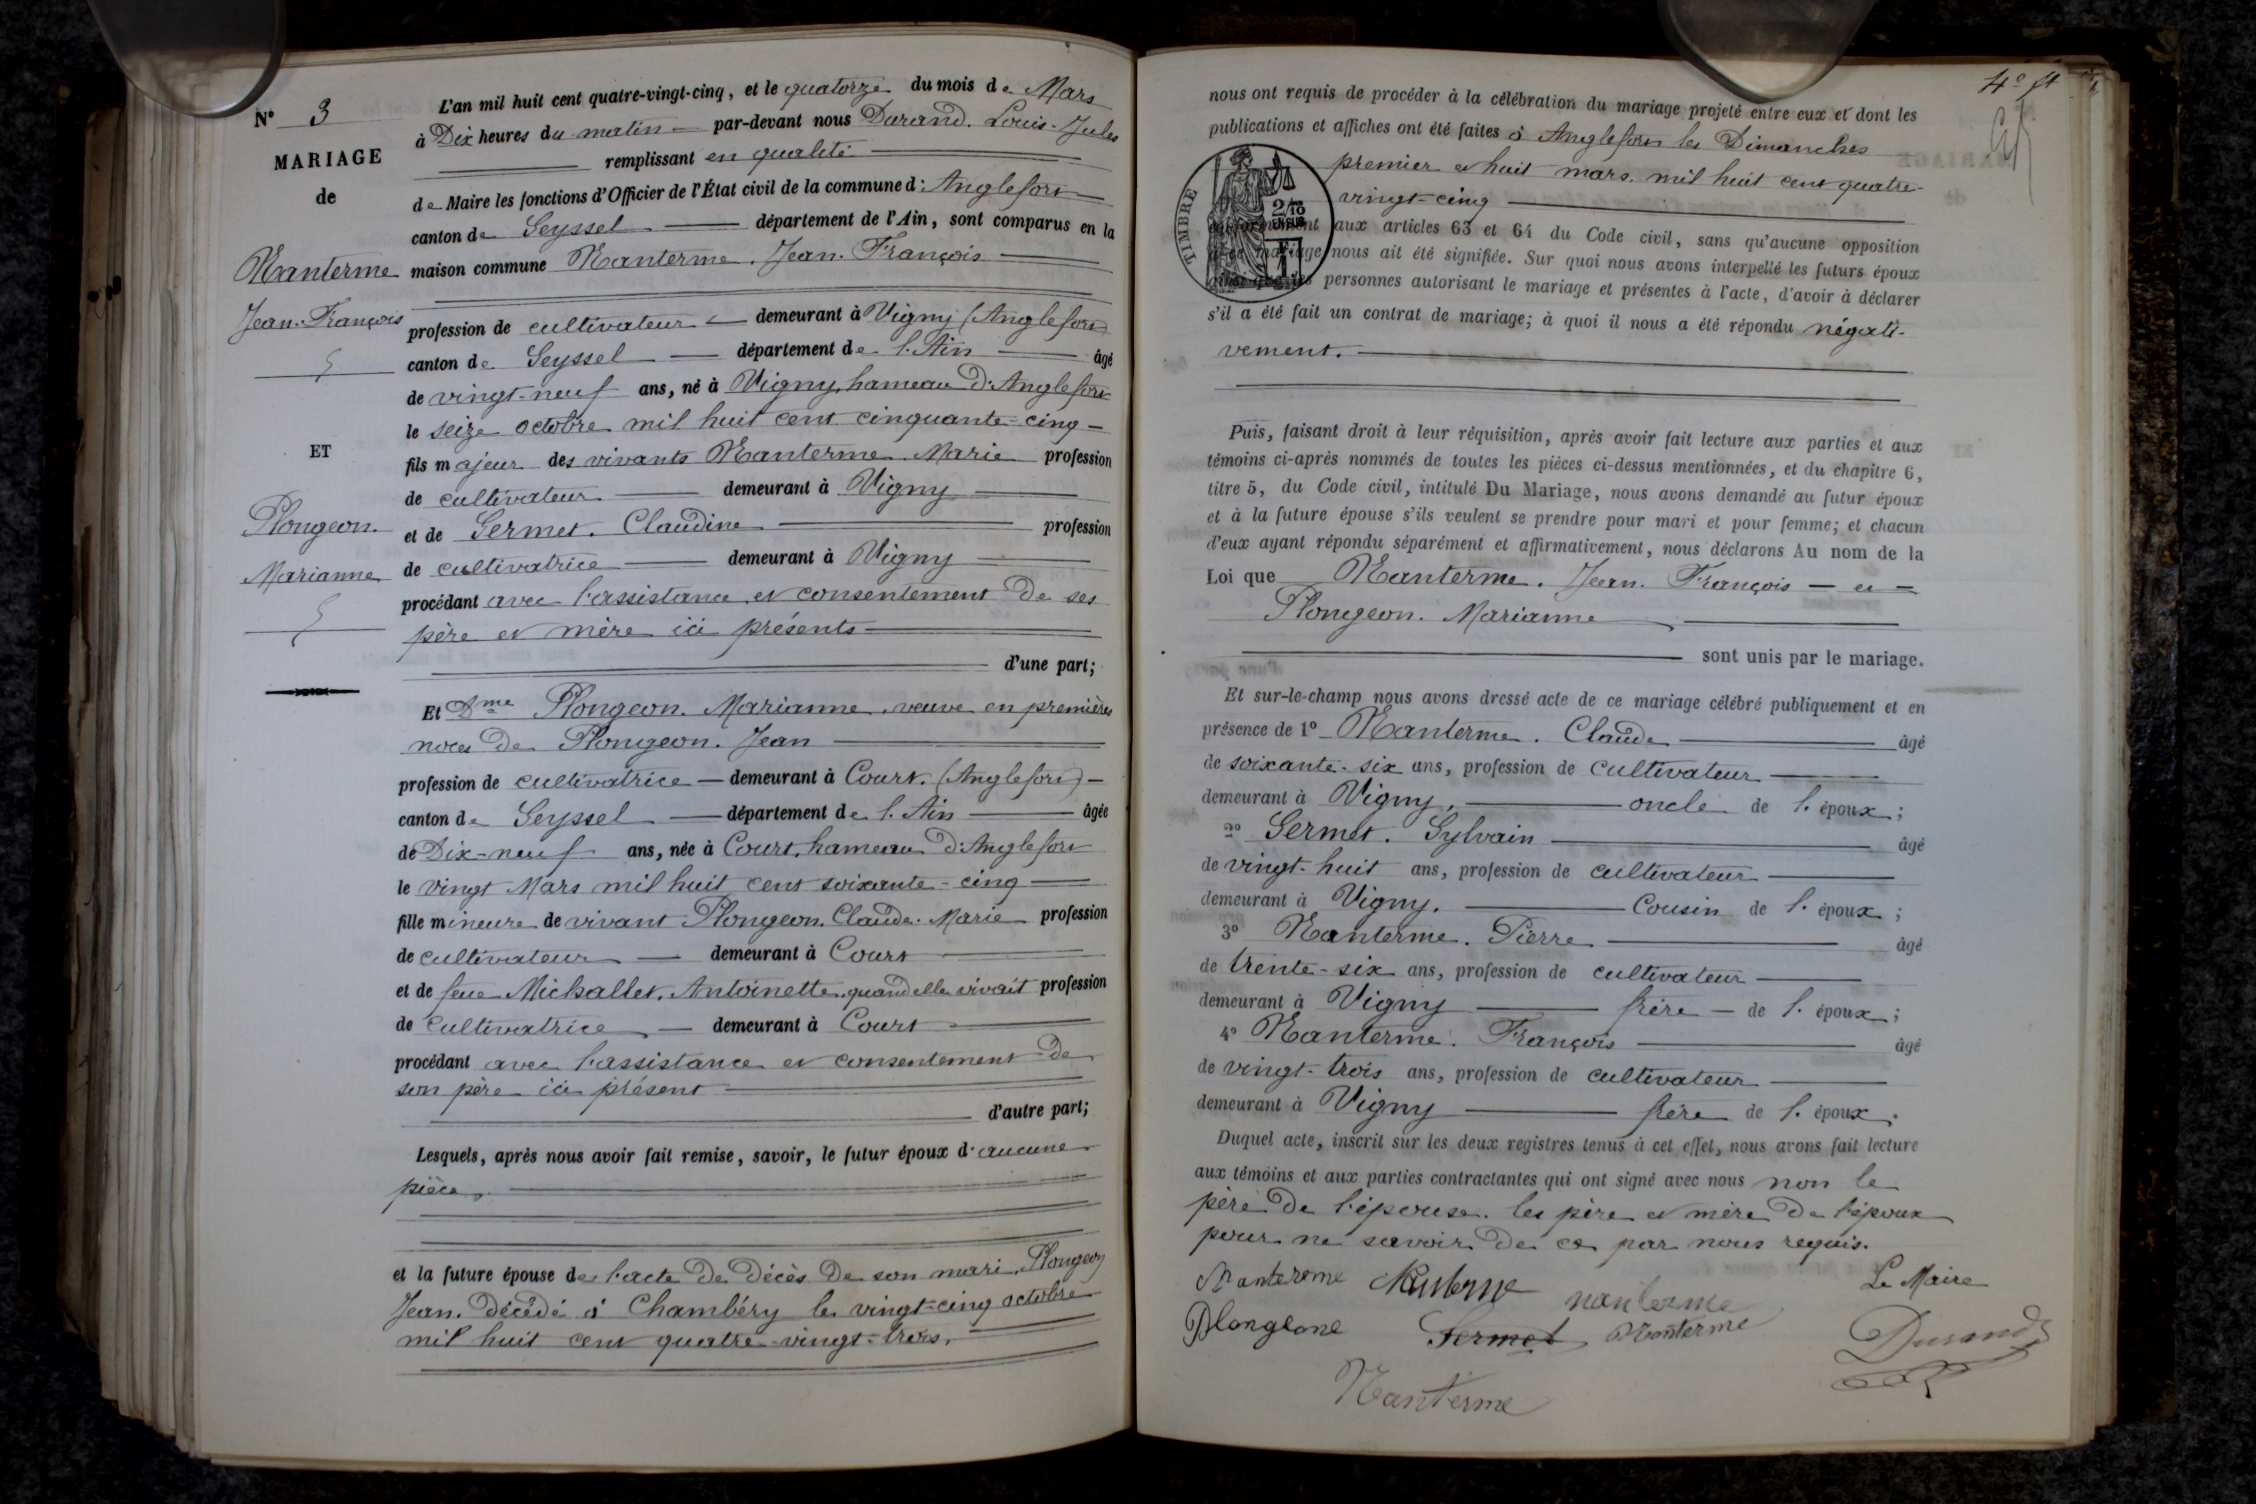 N° 3
MARIAGE
de
Nanterme
Jean-François
ET
Plongeon.
Marianne
L'an mil huit cent quatre-vingt-cinq, et le quatorze du mois de Mars
à Dix heures du matin par-devant nous Durand. Louis-Jules
remplissant en qualité
de Maire les fonctions d'Officier de l'État civil de la commune d'Anglefort
canton de Seyssel département de l'Ain, sont comparus en la
maison commune Nanterme. Jean-François
profession de cultivateur demeurant à Vigny (Anglefort)
canton de Seyssel département de l'Ain âgé
de vingt-neuf ans, né à Vigny, hameau d'Anglefort
le seize octobre mil huit cent cinquante-cinq
fils majeur des vivants Nanterme Marie profession
de cultivateur demeurant à Vigny
et de Sermet. Claudine profession
de cultivatrice demeurant à Vigny
procédant avec l'assistance et consentement de ses
père et mère ici présents
d'une part;
Et Dme Plongeon. Marianne, veuve en premières
noces de Plongeon. Jean
profession de cultivatrice demeurant à Court. (Anglefort)
canton de Seyssel département de l'Ain âgée
de Dix-neuf ans, née à Court, hameau d'Anglefort
le vingt Mars mil huit cent soixante-cinq
fille mineure de vivant Plongeon. Claude-Marie profession
de cultivateur demeurant à Court
et de feue Michallet. Antoinette, quand elle vivait profession
de cultivatrice demeurant à Court
procédant avec l'assistance et consentement de
son père ici présent
d'autre part;
Lesquels, après nous avoir fait remise, savoir, le futur époux d'aucune
pièce,
et la future épouse de l'acte de décès de son mari, Plongeon
Jean. décédé à Chambéry le vingt-cinq octobre
mil huit cent quatre-vingt-trois.
4e ft
nous ont requis de procéder à la célébration du mariage projeté entre eux et dont les
publications et affiches ont été faites à Anglefort les Dimanches
premier et huit mars mil huit cent quatre-
vingt-cinq
TIMBRE
2/10
EN SUS
aux articles 63 et 64 du Code civil, sans qu'aucune opposition
mariage nous ait été signifiée. Sur quoi nous avons interpellé les futurs époux
personnes autorisant le mariage et présentes à l'acte, d'avoir à déclarer
s'il a été fait un contrat de mariage; à quoi il nous a été répondu négati-
vement.
Puis, faisant droit à leur réquisition, après avoir fait lecture aux parties et aux
témoins ci-après nommés de toutes les pièces ci-dessus mentionnées, et du chapitre 6,
titre 5, du Code civil, intitulé Du Mariage, nous avons demandé au futur époux
et à la future épouse s'ils veulent se prendre pour mari et pour femme; et chacun
d'eux ayant répondu séparément et affirmativement, nous déclarons Au nom de la
Loi que Nanterme. Jean-François et
Plongeon. Marianne
sont unis par le mariage.
Et sur-le-champ nous avons dressé acte de ce mariage célébré publiquement et en
présence de 1° Nanterme. Claude âgé
de soixante-six ans, profession de cultivateur
demeurant à Vigny. oncle de l'époux;
2° Sermet. Sylvain âgé
de vingt-huit ans, profession de cultivateur
demeurant à Vigny. Cousin de l'époux;
3° Nanterme. Pierre âgé
de trente-six ans, profession de cultivateur
demeurant à Vigny frère de l'époux;
4° Nanterme. François âgé
de vingt-trois ans, profession de cultivateur
demeurant à Vigny frère de l'époux.
Duquel acte, inscrit sur les deux registres tenus à cet effet, nous avons fait lecture
aux témoins et aux parties contractantes qui ont signé avec nous non le
père de l'épouse. les père et mère de l'époux
pour ne savoir de ce par nous requis.
Nanterme Nanterme nanterme Le Maire
Plongeone Sermet Nanterme Durand
Nanterme